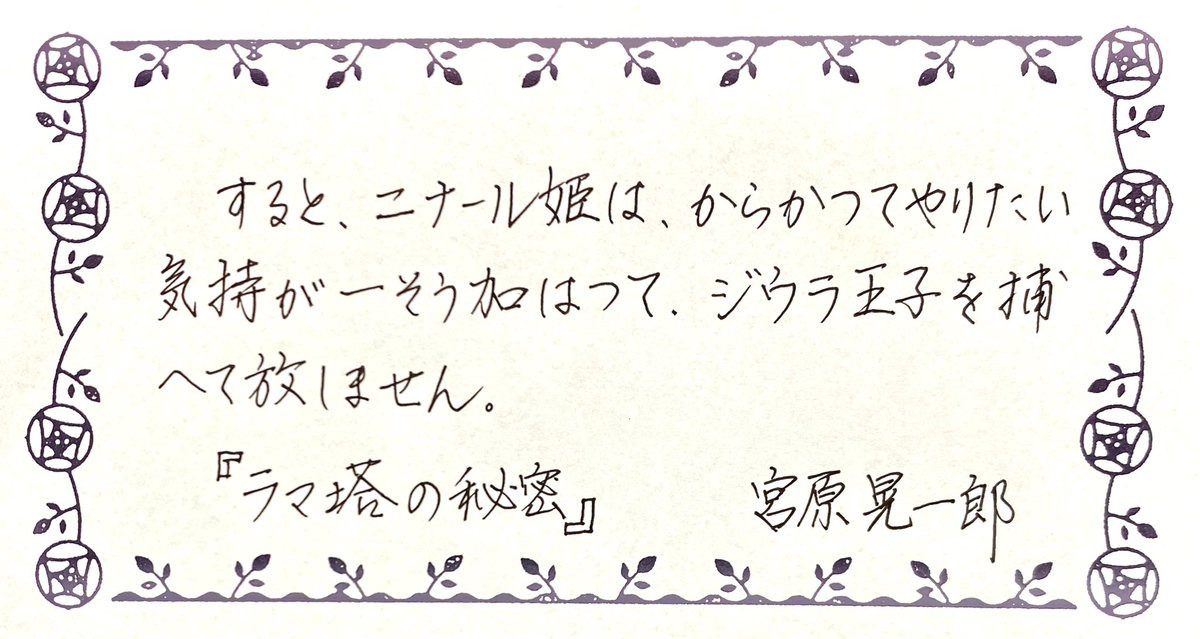 すると、ニナール姫は、からかつてやりたい
気持が一そう加はつて、ジウラ王子を捕
へて放しません。
『ラマ塔の秘密』 宮原晃一郎